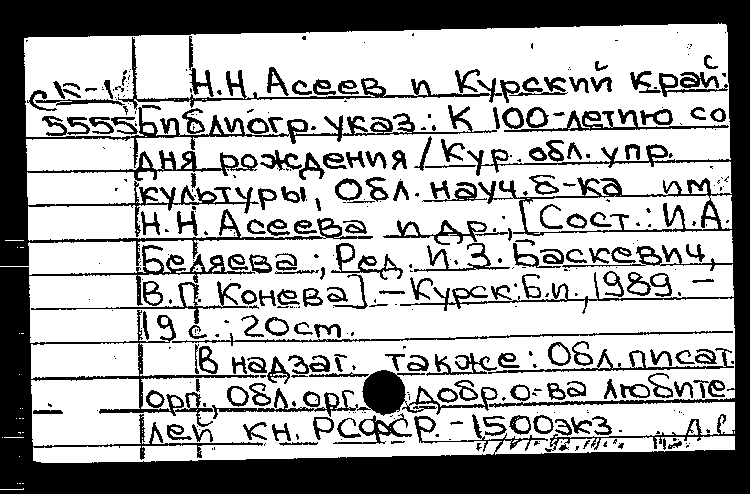 Н.Н. Асеев и Курский край:
СК-1
5555 Библиогр. указ.: К 100-летию со
дня рождения / Кур. обл. упр.
культуры, Обл. науч. б-ка им.
Н.Н. Асеева и др.; [Сост.: И.А.
Беляева; Ред. И.З. Баскевич,
В.П. Конева]. — Курск: Б.и., 1989. —
19 с.; 20 см.
В надзаг. также: Обл. писат.
орг., Обл. орг. добр. о-ва любите-
лей кн. РСФСР. - 1500 экз.